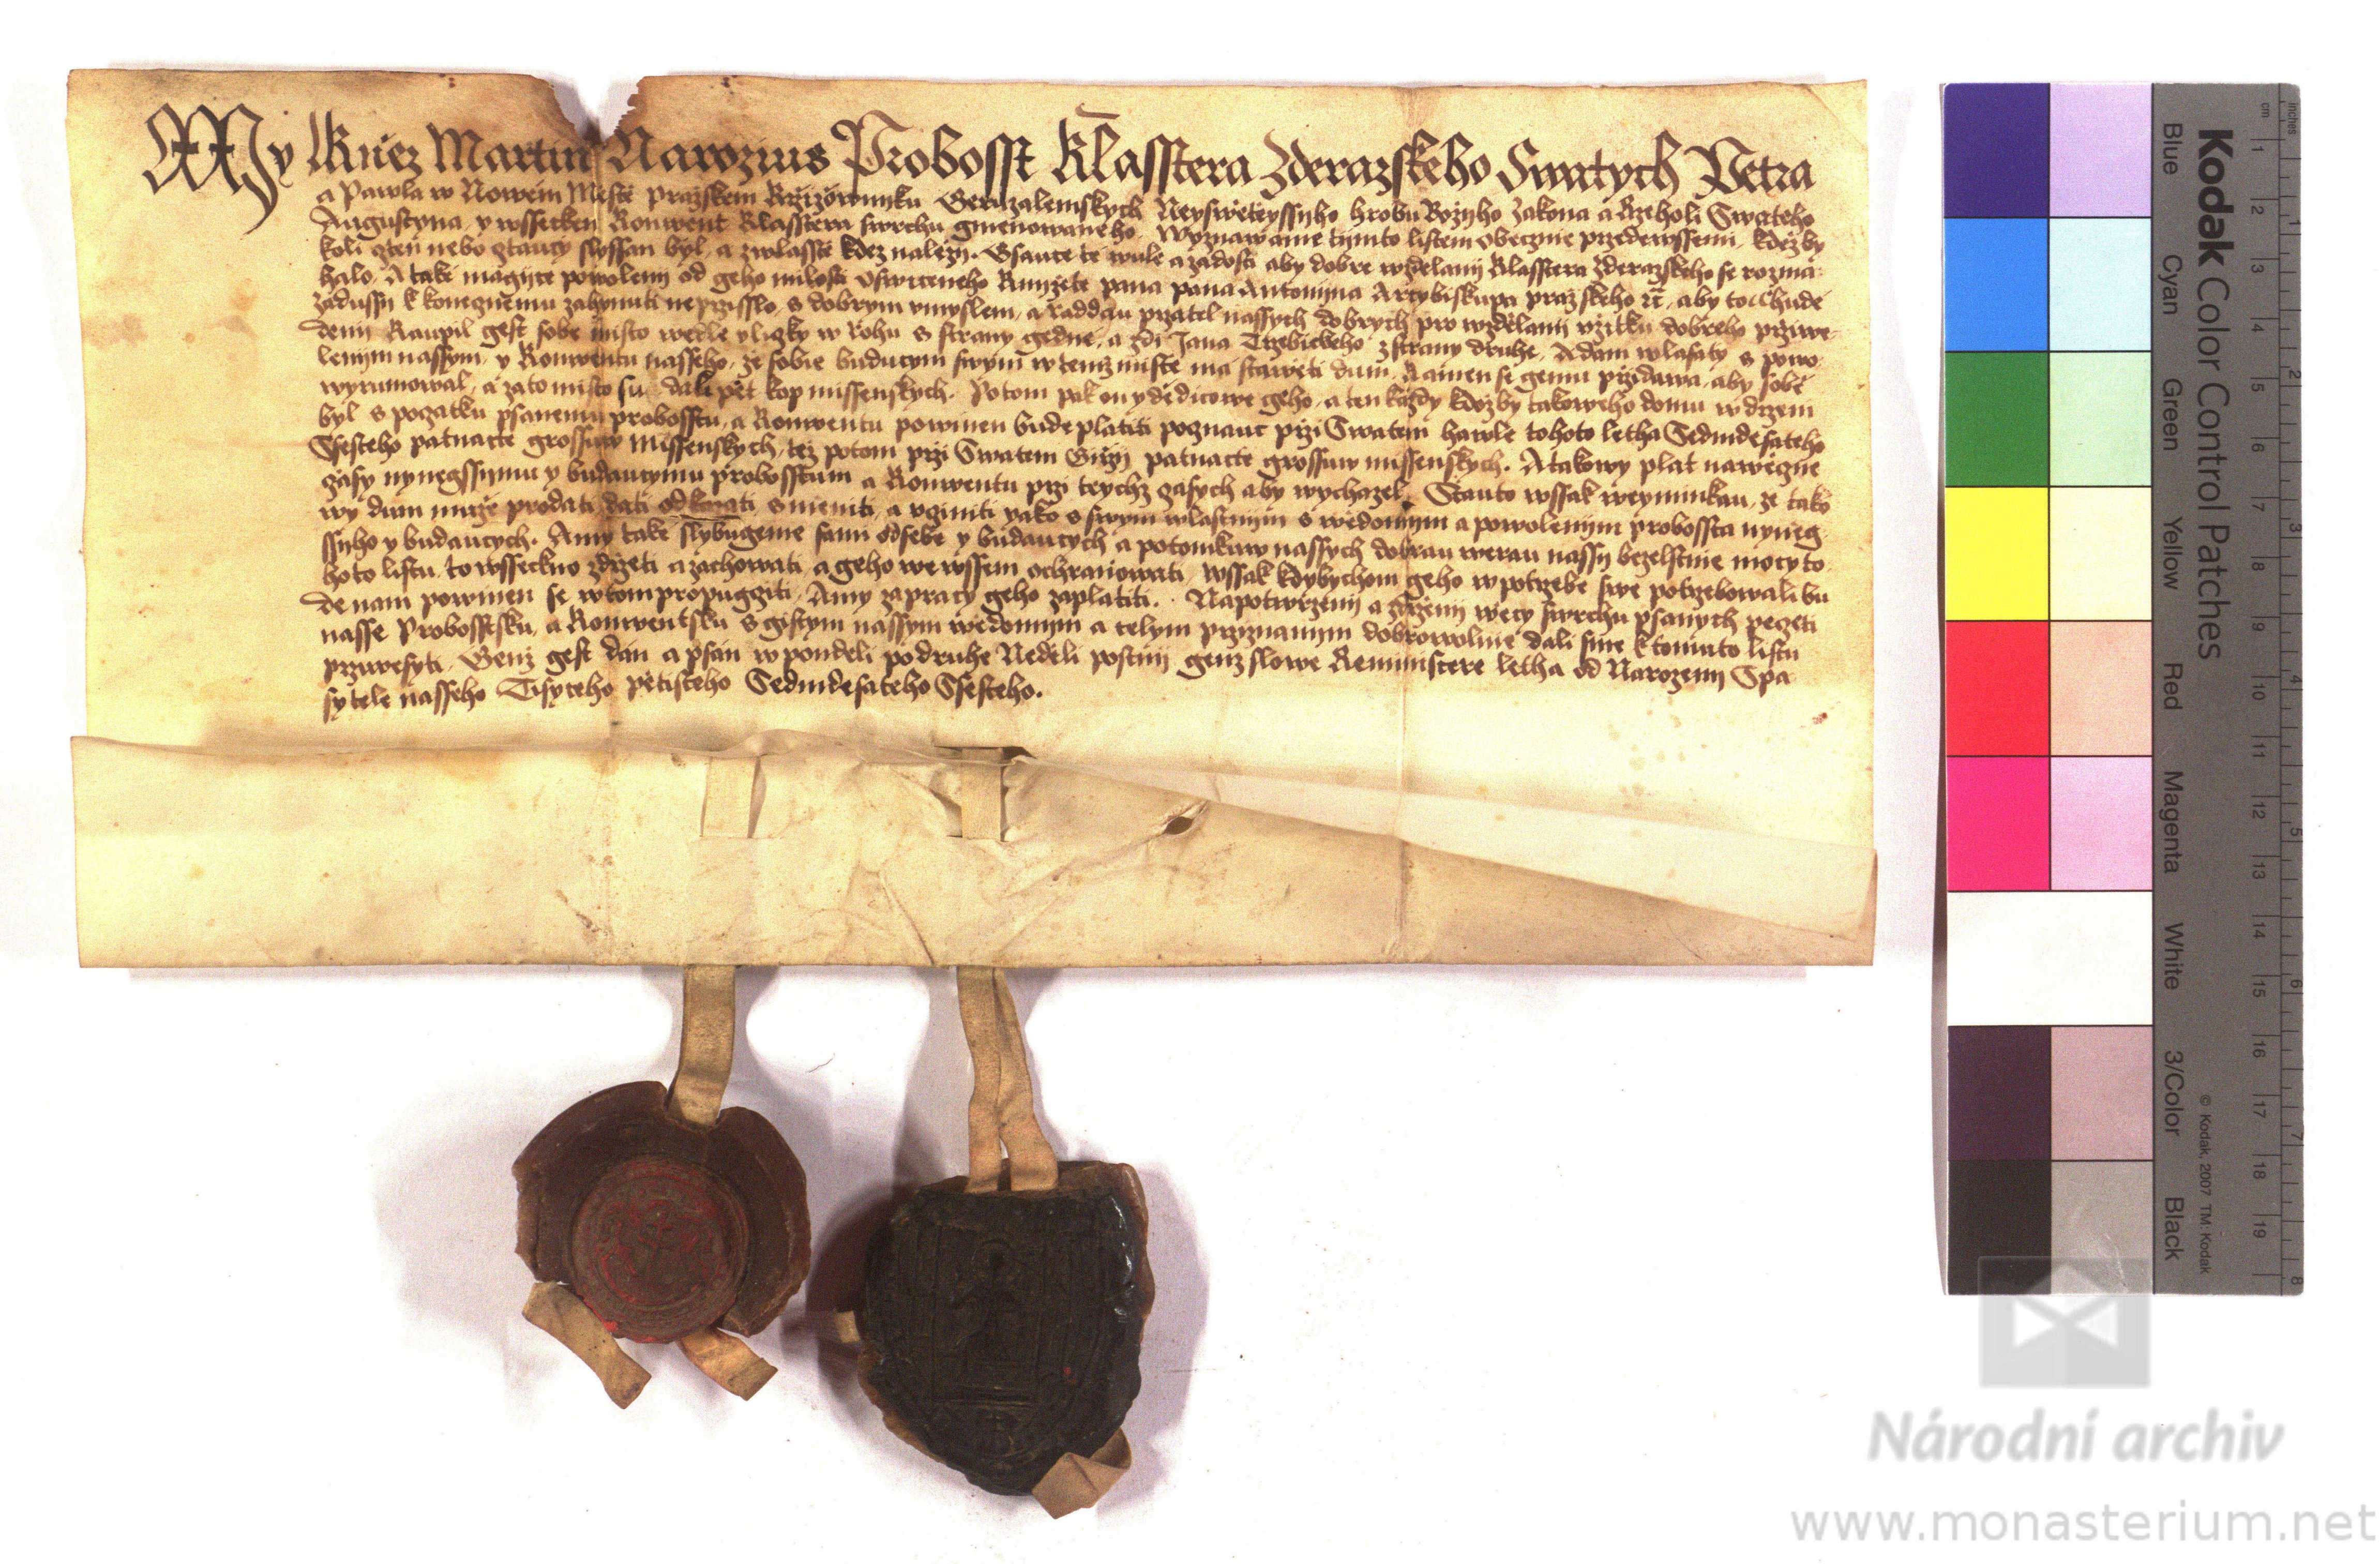 My Knez Martin Narozius Probosst Klasstera Zderazskeho Swatych Petra
a Pawla w Nowem Mieste Prazskem Krzizownikuw Geruzalemskych Neyswetegssyho hrobu Bozyho Zakona a Rzeholi Swateho
Augustyna, y wssecken Konwent Klasstera swrchu gmenowaneho. Wyznawame tijmto listem obecznie przedewssemi, kdezby
koli cten nebo cztaucy slyssan byl, a zwlasste kdez nalezy. Gsauce te wule a zadosti aby dobre wzdelanij Klasstera Zderazskeho se rozma-
halo, A take magijce powolenij od geho milosti Oswiceneho Knijzete pana pana Antonijna Arcybiskupa prazskeho ec, aby to Chude
zadussij k konecznemu zahynuti neprzisslo, s dobrym vmyslem, a raddau przatel nassych dobrych pro wzdelanij vzitku dobreho przwe-
denij Kaupil gest sobe misto wedle vliczky w Rohu s strany gedne, a zdi Jana Trzebickeho z strany druhe, Adam wlasaty s powo-
lenijm nassym, y Konwentu nasseho, ze sobie buducym swym w temz miste ma staweti dum, A amen se gemu przidawa, aby sobe
wyrumowal, a zato misto su dali pet kop missenskych. Potom pak on y dedicowe geho, a ten kazdy kdozby takoweho domu w drzeni
byl s poczatku psanemu probosstu, a Konwentu powinen bude platiti poczna przi Swatem hawle tohoto letha Sedmdesateho
Ssesteho patnacte grossuw missenskych, tez potom przi Swatem Girzij patnacte grossuw missenskych. A takowy plat nawieczne
czasy nynegssymu y budaucymu probosstum a Konwentu przi tychz czasych aby wychazel. S tauto wssak weyminkau, ze tako
wy dum muze prodati, dati, odkazati, smeniti, a vczniti yako s swym wlastnijm s wedomijm a powolenijm probossta nyneg-
ssyho y budaucych. Amy take slybugeme sami odsebe y budaucych a potomkuw nassych dobrau werau nassy bezelstnie mocy to-
hoto listu, to wsseckno zdrzeti a zachowati, a geho we wssem ochranowati, wssak kdybychom geho w potrzebe swe potrzebowali bu
de nam powinen se w tom propugcziti, Amy zapracy geho zaplatiti. Napotwrzenij a zdrzenij wecy swrchu psanych peczeti
nasse Probosstsku, a Konwentsku s gistym nassym wedomijm a celym przyznanijm dobrowolnie dali sme k tomuto listu
przywesyti. Genz gest dan a psan w pondeli po druhe Nedeli postnij genz slowe Reminiscere letha od Narozenij Spa
sytele nasseho Tisyceho Petisteho Sedmdesateho Ssesteho.
Kodak Color Control Patches
Blue
Cyan
Green
Yellow
Red
Magenta
White
3/Color
Black
© Kodak, 2007 TM: Kodak
inches
1
2
3
4
5
6
7
8
cm
1
2
3
4
5
6
7
8
9
10
11
12
13
14
15
16
17
18
19
Národní archiv
www.monasterium.net